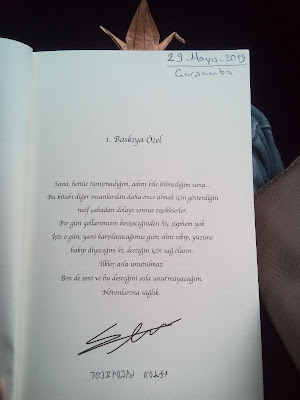 29-Mayıs-2019
Çarşamba
1. Baskıya Özel
Sana, henüz tanışmadığım, adını bile bilmediğim sana...
Bu kitabı diğer insanlardan daha önce almak için gösterdiğin
naif çabadan dolayı sonsuz teşekkürler.
Bir gün yollarımızın kesişeceğinden hiç şüphem yok.
İşte o gün, yani karşılaşacağımız gün; elini sıkıp, yüzüne
bakıp diyeceğim ki; desteğin için sağ olasın.
İlkler asla unutulmaz.
Ben de seni ve bu desteğini asla unutmayacağım.
Nöronlarına sağlık.